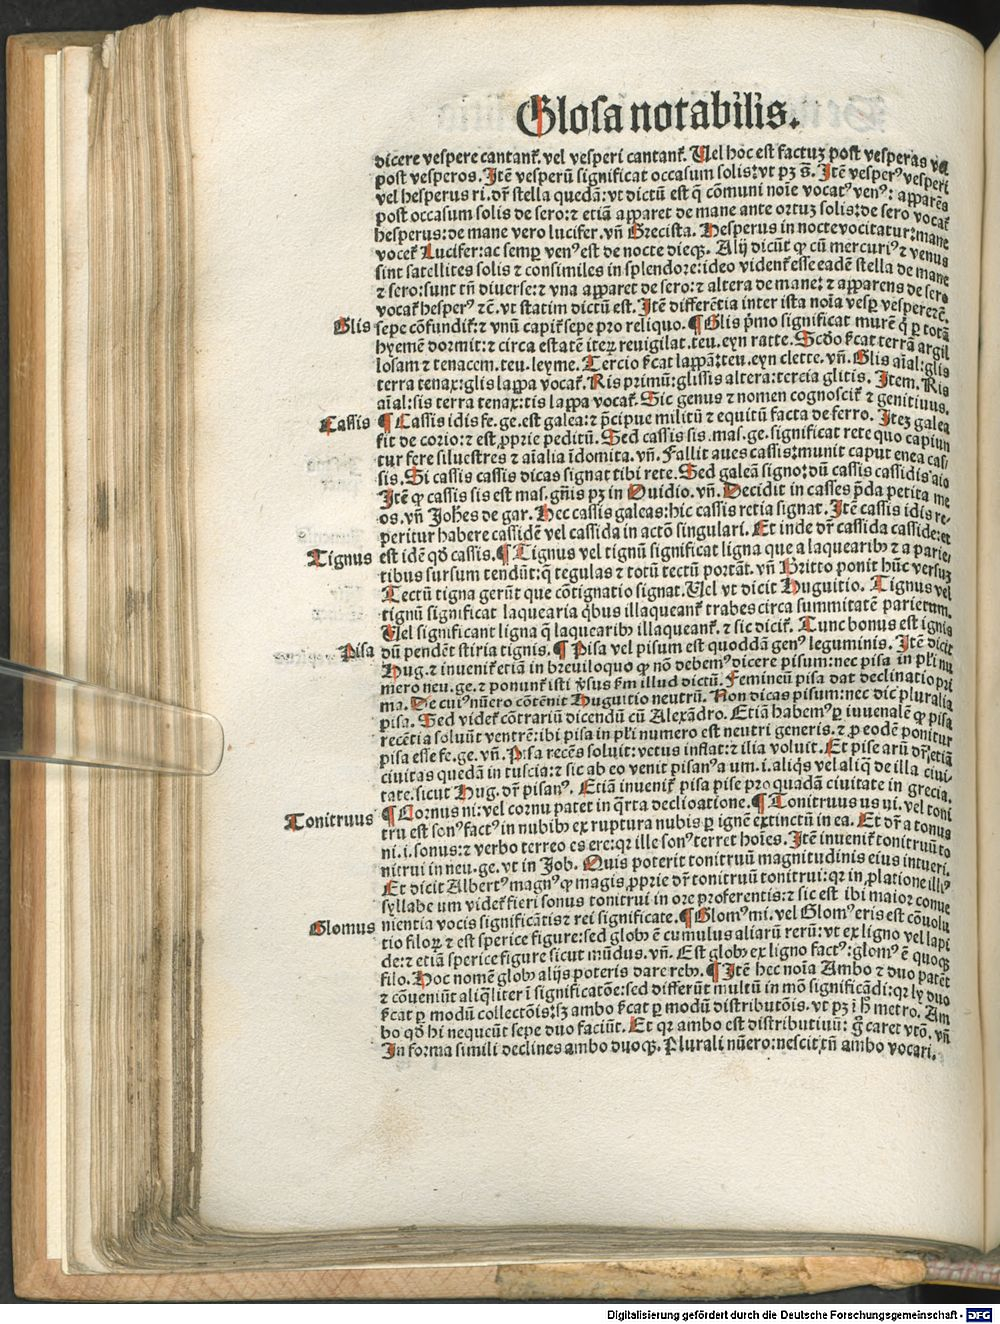 Glosa notabilis.
dicere vespere cantant᷑. vel vesperi cantant᷑. Uel hoc est factuꝫ post vesperas vel
post vesperos. Itē vesperū significat occasum solis: vt pꝫ s̄. Itē vesperꝰ vesperi
vel hesperus ri. dr̄ stella quedā: vt dictū est q̄ cōmuni noīe vocatꝰ venꝰ: apparēs
post occasum solis de sero: ⁊ etiā apparet de mane ante ortuꝫ solis: de sero vocat᷑
hesperus: de mane vero lucifer. vn̄ Grecista. Hesperus in nocte vocitatur: mane
vocet᷑ Lucifer: ac semꝑ venꝰ est de nocte dieqꝫ. Alij dicūt ꝙ cū mercuriꝰ ⁊ venus
sint satellites solis ⁊ consimiles in splendore: ideo vident᷑ esse eadē stella de mane
⁊ sero: sunt tn̄ diuerse: ⁊ vna apparet de sero: ⁊ altera de mane: ⁊ apparens de sero
vocat᷑ hesperꝰ ⁊c̄. vt statim dictū est. Itē differētia inter ista noīa vesꝑ vespere ⁊c̄.
Glis sepe cōfundit᷑: ⁊ vnū capit᷑ sepe pro reliquo. ¶ Glis pͥmo significat murē q̄ ꝑ totā
hyemē dormit: ⁊ circa estatē iteꝝ reuigilat. teu. eyn ratte. Scd̄o ſcat terrā argil
losam ⁊ tenacem. teu. leyme. Tercio ſcat lappā: teu. eyn clette. vn̄. Glis aīal: glis
terra tenax: glis lappa vocat᷑. Ris primū: glissis altera: tercia glitis. Item. Ris
aīal: sis terra tenax: tis lappa vocat᷑. Sic genus ⁊ nomen cognoscit᷑ ⁊ genitiuus.
Cassis ¶ Cassis idis fe. ge. est galea: ⁊ p̄cipue militū ⁊ equitū facta de ferro. Iteꝫ galea
fit de corio: ⁊ est ꝓprie peditū. Sed cassis sis. mas. ge. significat rete quo capiun
tur fere siluestres ⁊ aīalia īdomita. vn̄. Fallit aues cassis: munit caput enea cas
sis. Si cassis cassis dicas signat tibi rete. Sed galeā signo: dū cassis cassidis aio
Itē ꝙ cassis sis est mas. gn̄is pꝫ in Ouidio. vn̄. Decidit in casses p̄da petita me
os. vn̄ Joh̄es de gar. Hec cassis galeas: hic cassis retia signat. Itē cassis idis re-
peritur habere cassidē vel cassida in actō singulari. Et inde dr̄ cassida casside: et
Tignus est idē qd̄ cassis. ¶ Tignus vel tignū significat ligna que a laquearibꝫ ⁊ a parie-
tibus sursum tendūt: q̄ tegulas ⁊ totū tectū portāt. vn̄ Britto ponit hūc versuꝫ
Tectū tigna gerūt que cōtignatio signat. Uel vt dicit Huguitio. Tignus vel
tignū significat laquearia q̄bus illaqueant᷑ trabes circa summitatē parietum.
Uel significant ligna q̄ laquearibꝫ illaqueant᷑. ⁊ sic dicit᷑. Tunc bonus est ignis
Pisa dū pendēt stiria tignis. ¶ Pisa vel pisum est quoddā genꝰ leguminis. Itē dicit
Hug. ⁊ inuenit᷑ etiā in breuiloquo ꝙ nō debemꝰ dicere pisum: nec pisa in pl̄i nu
mero neu. ge. ⁊ ponunt᷑ isti v̓sus ẜm illud dictū. Femineū pisa dat declinatio pri
ma. De cuiꝰ nūero cōtēnit Huguitio neutrū. Non dicas pisum: nec dic pluralia
pisa. Sed videt᷑ cōtrariū dicendū cū Alexādro. Etiā habemꝰ ꝑ iuuenalē ꝙ pisa
recētia soluūt ventrē: ibi pisa in pl̄i numero est neutri generis. ⁊ ꝓ eodē ponitur
pisa esse fe. ge. vn̄. Pisa recēs soluit: vetus inflat: ⁊ ilia voluit. Et pise arū dr̄ etiā
ciuitas quedā in tuscia: ⁊ sic ab eo venit pisanꝰ a um. i. aliq̄s vel aliq̄ de illa ciui-
tate. sicut Hug. dr̄ pisanꝰ. Etiā inuenit᷑ pisa pise pro quadā ciuitate in grecia.
Tonitruus ¶ Cornus ni: vel cornu patet in q̄rta declinatione. ¶ Tonitruus us ui. vel toni
tru est sonꝰ factꝰ in nubibꝫ ex ruptura nubis ꝑ ignē extinctū in ea. Et dr̄ a tonus
ni. i. sonus: ⁊ verbo terreo es ere: qꝛ ille sonꝰ terret hoīes. Itē inuenit᷑ tonitruū to
nitrui in neu. ge. vt in Job. Quis poterit tonitruū magnitudinis eius intueri.
Et dicit Albertꝰ magnꝰ ꝙ magis ꝓprie dr̄ tonitruū tonitrui: qꝛ in ꝓlatione illiꝰ
syllabe um videt᷑ fieri sonus tonitrui in ore proferentis: ⁊ sic est ibi maior conue
Glomus nientia vocis significātis ⁊ rei significate. ¶ Glomꝰ mi. vel Glomꝰ eris est cōuolu
tio filoꝝ ⁊ est sperice figure: sed globꝰ ē cumulus aliarū rerū: vt ex ligno vel lapi
de: ⁊ etiā sperice figure sicut mūdus. vn̄. Est globꝰ ex ligno factꝰ: glomꝰ ē quoqꝫ
filo. Hoc nomē globꝰ alijs poteris dare rebꝰ. ¶ Itē hec noīa Ambo ⁊ duo patēt
⁊ cōueniūt aliq̄liter ī significatōe: sed differūt multū in mō significādi: qꝛ ly duo
ſcat ꝑ modū collectōis: sꝫ ambo ſcat ꝑ modū distributōis. vt pꝫ ī h̄ metro. Am
bo qd̄ hi nequeūt sepe duo faciūt. Et qꝛ ambo est distributiuū: g̊ caret vtō. vn̄
In forma simili declines ambo duoqꝫ. Plurali nūero: nescit tn̄ ambo vocari.
Digitalisierung gefördert durch die Deutsche Forschungsgemeinschaft - DFG